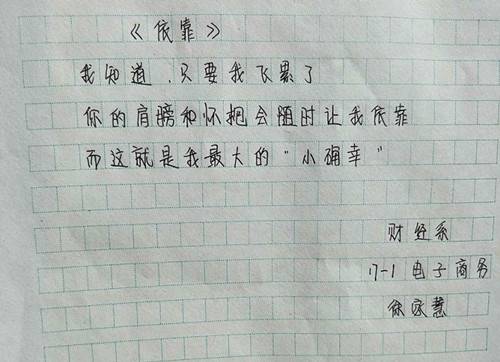 《依靠》
我知道，只要我飞累了
你的肩膀和怀抱会随时让我依靠
而这就是我最大的“小确幸”
财经系
17-1 电子商务
徐咏慧